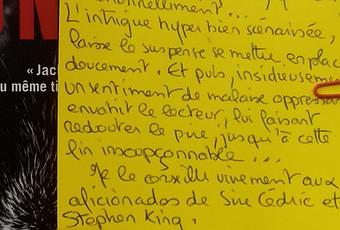 N
« Jac
u même ti
...onnellement...
L'intrigue hyper bien scénarisée,
laisse le suspense se mettre en plac
doucement. Et puis, insidieuseme
un sentiment de malaise oppressan
envahit le lecteur, lui faisant
redouter le pire, jusqu'à cette
fin insoupçonnable...
Je le conseille vivement aux
aficionados de Sire Cédric et
Stephen King.